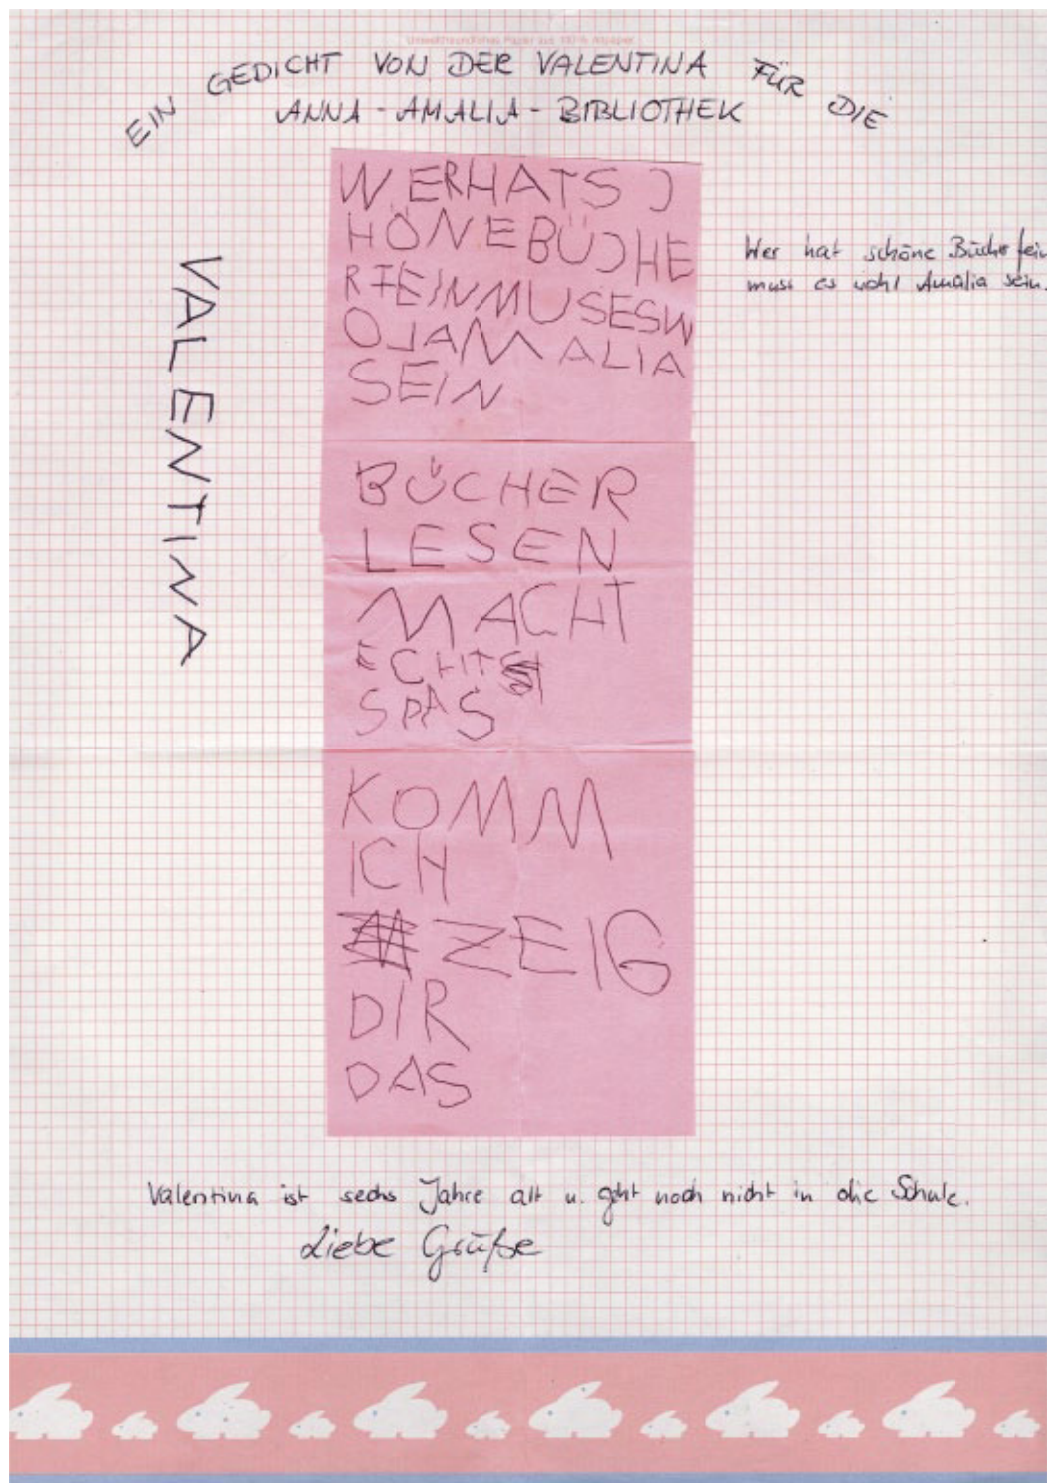 Umweltfreundliches Papier aus 100% Altpapier
EIN GEDICHT VON DER VALENTINA FÜR DIE
ANNA-AMALIA-BIBLIOTHEK
WERHATSC
HÖNEBÜCHE
RFEINMUSESW
OLAMALIA
SEIN
Wer hat schöne Bücher fein
muss es wohl Amalia sein.
VALENTINA
BÜCHER
LESEN
MACHT
ECHT
SPAS
KOMM
ICH
ZEIG
DIR
DAS
Valentina ist sechs Jahre alt u. geht noch nicht in die Schule.
Liebe Grüße